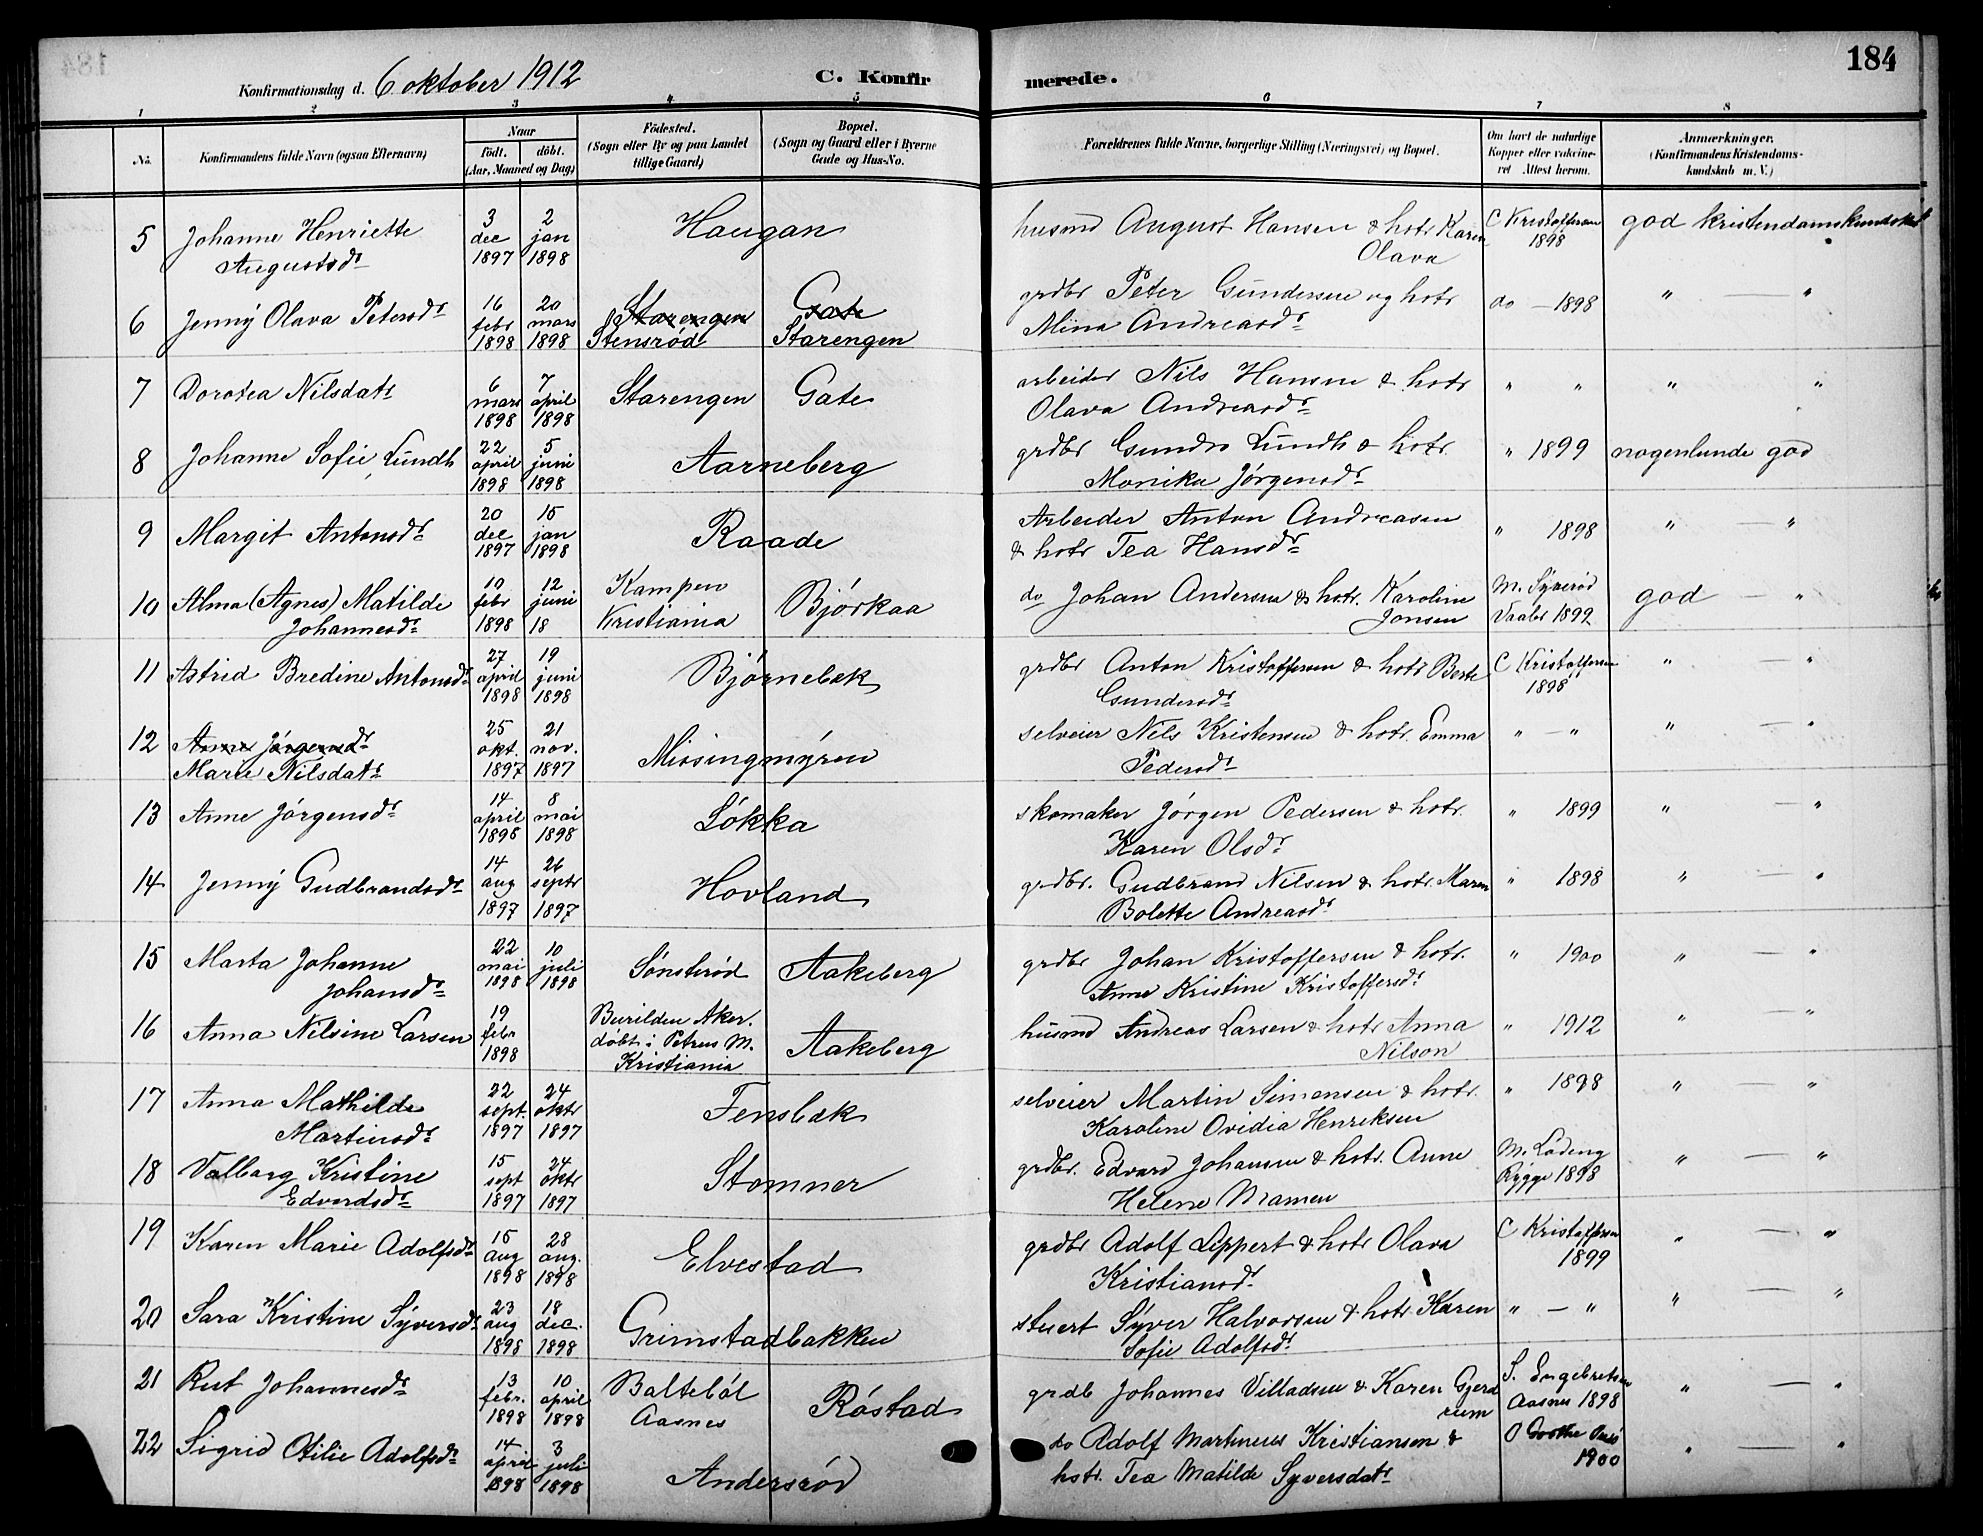 184
Konfirmationsdag d. 6 oktober 1912
C. Konfirmerede.
1 2 3 4 5 6 7 8
No. Konfirmandens fulde Navn (ogsaa Efternavn) Naar födt. döbt. (Aar, Maaned og Dag) Födested. (Sogn eller By og paa Landet tillige Gaard) Bopæl. (Sogn og Gaard eller i Byerne Gade og Hus-No. Forældrenes fulde Navne, borgerlige Stilling (Næringsvei) og Bopæl. Om havt de naturlige Kopper eller vakcineret Attest herom. Anmærkninger. (Konfirmandens Kristendomskundskab m. V.)
5 Johanne Henriette Augustsdr 3 dec 1897 2 jan 1898 Haugan husmd August Hansen & hstr Karen Olava C Kristoffersen 1898 god kristendomskundskab
6 Jenny Olava Petersdr 16 febr 1898 20 mars 1898 Starengen Stensrød Gate Starengen grdbr Peter Gundersen og hstr Mina Andreasdr do — 1898 " — "
7 Dorotea Nilsdatr 6 mars 1898 7 april 1898 Starengen Gate arbeider Nils Hansen & hstr Olava Andreasdr " " " "
8 Johanne Sofie Lundh 22 april 1898 5 juni 1898 Aarneberg grdbr Gundro Lundh & hstr. Monika Jørgensdr " 1899 nogenlunde god
9 Margit Antonsdr 20 dec 1897 15 jan 1898 Raade Arbeider Anton Andreasen & hstr Tea Hansdr " 1898 " — "
10 Alma (Agnes) Matilde Johannesdr 10 febr 1898 12 juni 18 Kampen Kristiania Bjørkaa do Johan Andersen & hstr. Karoline Jonsen M. Vaaler 1899 god — "
11 Astrid Bredine Antonsdr 27 april 1898 19 juni 1898 Bjørnebek grdbr Anton Kristoffersen & hstr Berte Gundersdr C Kristoffersen 1898 " — "
12 Anne Jørgensdr Marie Nilsdatr 25 okt. 1897 21 nov. 1897 Missingmyren selveier Nils Kristensen & hstr. Emma Pedersdr " — " " — "
13 Anne Jørgensdr 14 april 1898 8 mai 1898 Løkka skomaker Jørgen Pedersen & hstr. Karen Olsdr " 1899 " — "
14 Jenny Gudbrandsdr 14 aug 1897 26 septr 1897 Hovland grdbr. Gudbrand Nilsen & hstr. Maren Bolette Andreasdr " 1898 " — "
15 Marta Johanne Johansdr 22 mai 1898 10 juli 1898 Sønsterød Aakeberg grdbr Johan Kristoffersen & hstr. Anne Kristine Kristoffersdr " 1900 " — "
16 Anna Nilsine Larsen 19 febr 1898 Aker. døbt i Petrus M. Kristiania Aakeberg husmd Andreas Larsen & hstr Anna Nilson " 1912 " — "
17 Anna Mathilde Martinsdr 22 sept. 1897 24 oktr 1897 Fensbek selveier Martin Simensen & hstr. Karoline Ovidia Henriksen " 1898 " — "
18 Valborg Kristine Edvardsdr 15 sept 1897 24 oktr 1897 Stomner grdbr. Edvard Johansen & hstr. Anne Helene Mamen M. Rygge 1898 " — "
19 Karen Marie Adolfsdr 15 aug 1898 28 aug. 1898 Elvestad grdbr Adolf Leppert & hstr Olava Kristiansdr C Kristoffersen 1899 " — "
20 Sara Kristine Syversdr 23 aug 1898 18 dec. 1898 Grimstadbakken stuert Syver Halvorsen & hstr. Karen Sofie Adolfsdr " — " " — "
21 Rut Johannesdr 13 febr. 1898 10 april 1898 Baltebøl Aasnes Røstad grdb Johannes Villadsen & Karen Gjerdrum S. Engebretsen Aasnes 1898 " — "
22 Sigrid Otilie Adolfsdr 14 april 1898 3 juli 1898 Andersrød do Adolf Martinius Kristiansen & hstr. Tea Matilde Syversdatr 1900 " — "